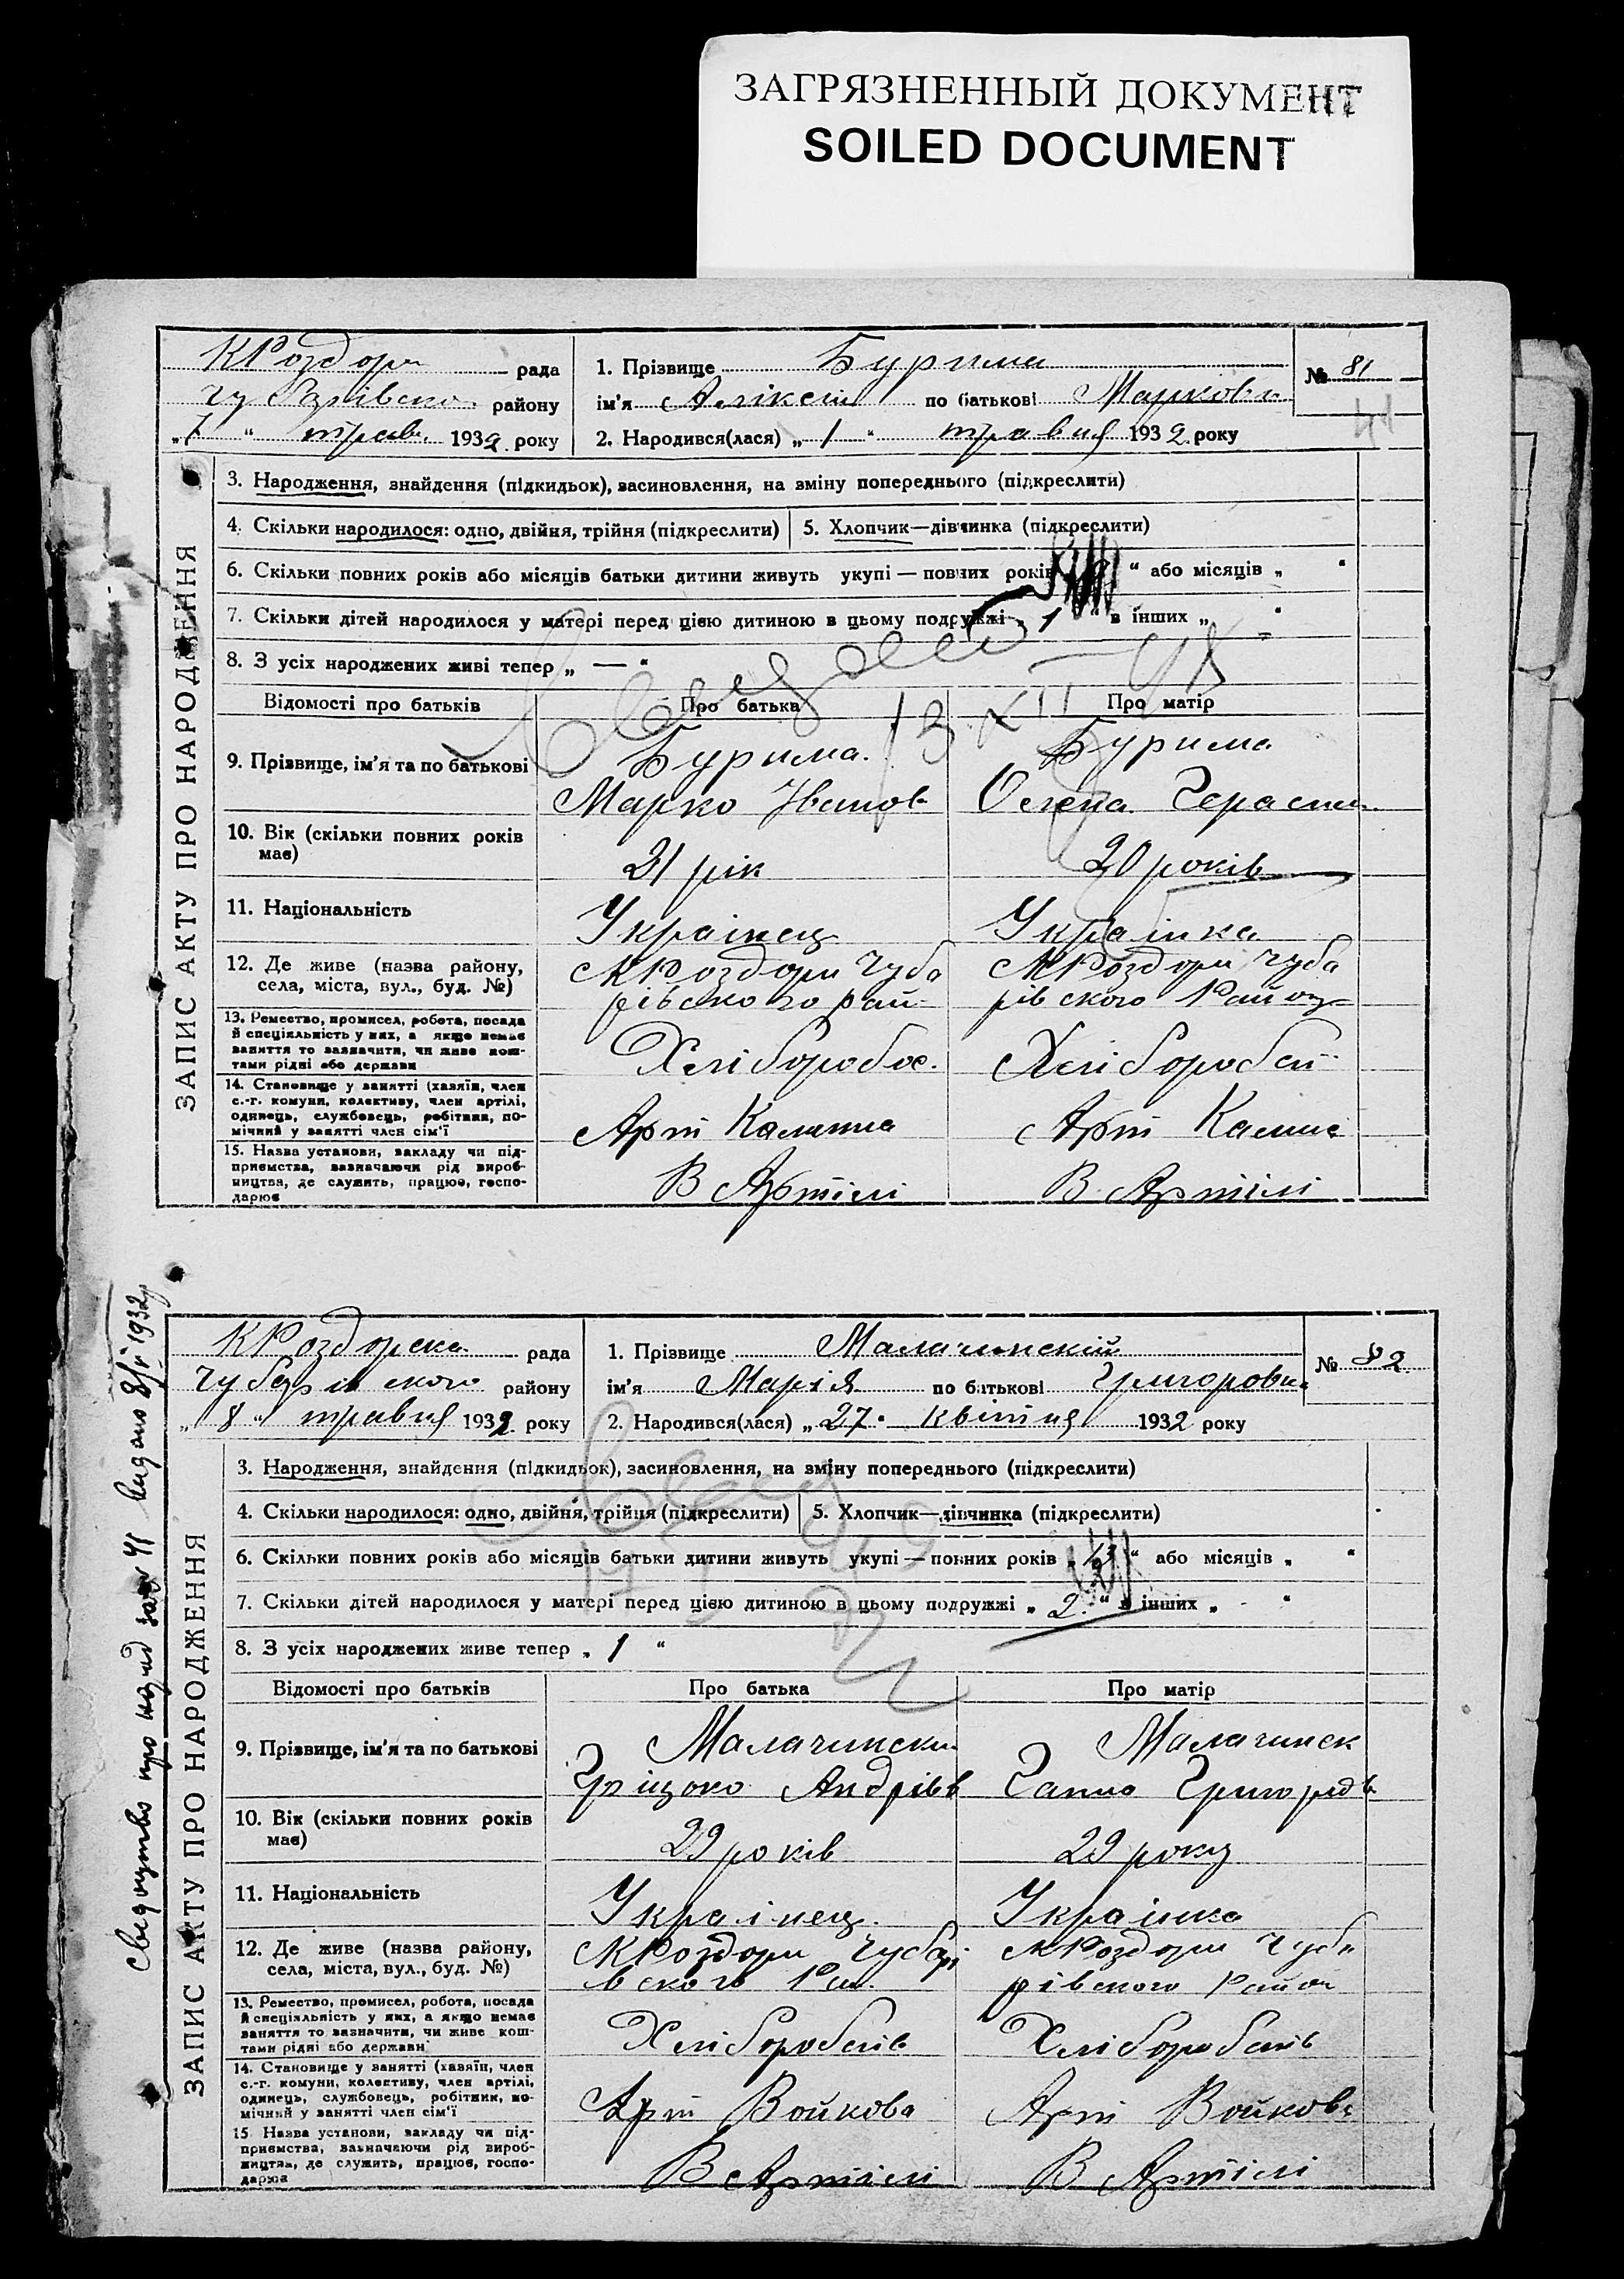 ЗАГРЯЗНЕННЫЙ ДОКУМЕНТ
SOILED DOCUMENT
КРоздори рада
Чубарівско району
„7“ травн. 1932 року
1. Прізвище Бурима
ім'я Аліксій по батькові Маркови
2. Народився(лася) „1“ травня 1932 року
№ 81
41
ЗАПИС АКТУ ПРО НАРОДЖЕННЯ
3. Народження, знайдення (підкидьок), засиновлення, на зміну попереднього (підкреслити)
4. Скільки народилося: одно, двійня, трійня (підкреслити)
5. Хлопчик—дівчинка (підкреслити)
6. Скільки повних років або місяців батьки дитини живуть укупі — повних років “ або місяців „ “
7. Скільки дітей народилося у матері перед цією дитиною в цьому подружжі „ 1 “ в інших „ “
8. З усіх народжених живі тепер „ — “
13 XII
Відомості про батьків
Про батька
Про матір
9. Прізвище, ім'я та по батькові
Бурима.
Марко Іванов
Бурима
Олена Герасим
10. Вік (скільки повних років
має)
21 рік
20 років
11. Національність
Українец
Українка
12. Де живе (назва району,
села, міста, вул., буд. №)
КРоздори Чуба
рівского рай
КРоздори Чуба
рівского Району
13. Ремество, промисел, робота, посада
й спеціяльність у них, а якщо немає
заняття то зазначити, чи живе кош-
тами рідні або держави
Хліборобс.
Хлібороб
14. Становище у занятті (хазяїн, член
с.-г. комуни, колективу, член артілі,
одинець, службовець, робітник, по-
мічний у занятті член сім'ї
Арт Калинина
Арт Калини
15. Назва установи, закладу чи під-
приємства, зазначаючи рід вироб-
ництва, де служить, працює, госпо-
дарює
В Артілі
В Артілі
Свидоцтво про народ за № 41 видано 8/V 1932р
КРоздорска рада
Чубарівского району
„8“ травня 1932 року
1. Прізвище Малачинский
ім'я Марія по батькові Григоровна
2. Народився(лася) „27“ квітня 1932 року
№ 82
ЗАПИС АКТУ ПРО НАРОДЖЕННЯ
3. Народження, знайдення (підкидьок), засиновлення, на зміну попереднього (підкреслити)
4. Скільки народилося: одно, двійня, трійня (підкреслити)
5. Хлопчик—дівчинка (підкреслити)
6. Скільки повних років або місяців батьки дитини живуть укупі — повних років „ “ або місяців „ “
7. Скільки дітей народилося у матері перед цією дитиною в цьому подружжі „ 2 “ в інших „ “
8. З усіх народжених живе тепер „ 1 “
Відомості про батьків
Про батька
Про матір
9. Прізвище, ім'я та по батькові
Малачински
Гріцько Андрієв
Малачинск
Ганна Григорієв
10. Вік (скільки повних років
має)
29 років
29 року
11. Національність
Українец.
Українка
12. Де живе (назва району,
села, міста, вул., буд. №)
КРоздори Чубарі
вского Рай.
КРоздори Чуба
рівского Район
13. Ремество, промисел, робота, посада
й спеціяльність у них, а якщо немає
заняття то зазначити, чи живе кош-
тами рідні або держави
Хліборобств
Хліборобств
14. Становище у занятті (хазяїн, член
с.-г. комуни, колективу, член артілі,
одинець, службовець, робітник, по-
мічний у занятті член сім'ї
Арт Войкова
Арт Войкова
15 Назва установи, закладу чи під-
приємства, зазначаючи рід вироб-
ництва, де служить, працює, госпо-
дарює
В Артілі
В Артілі